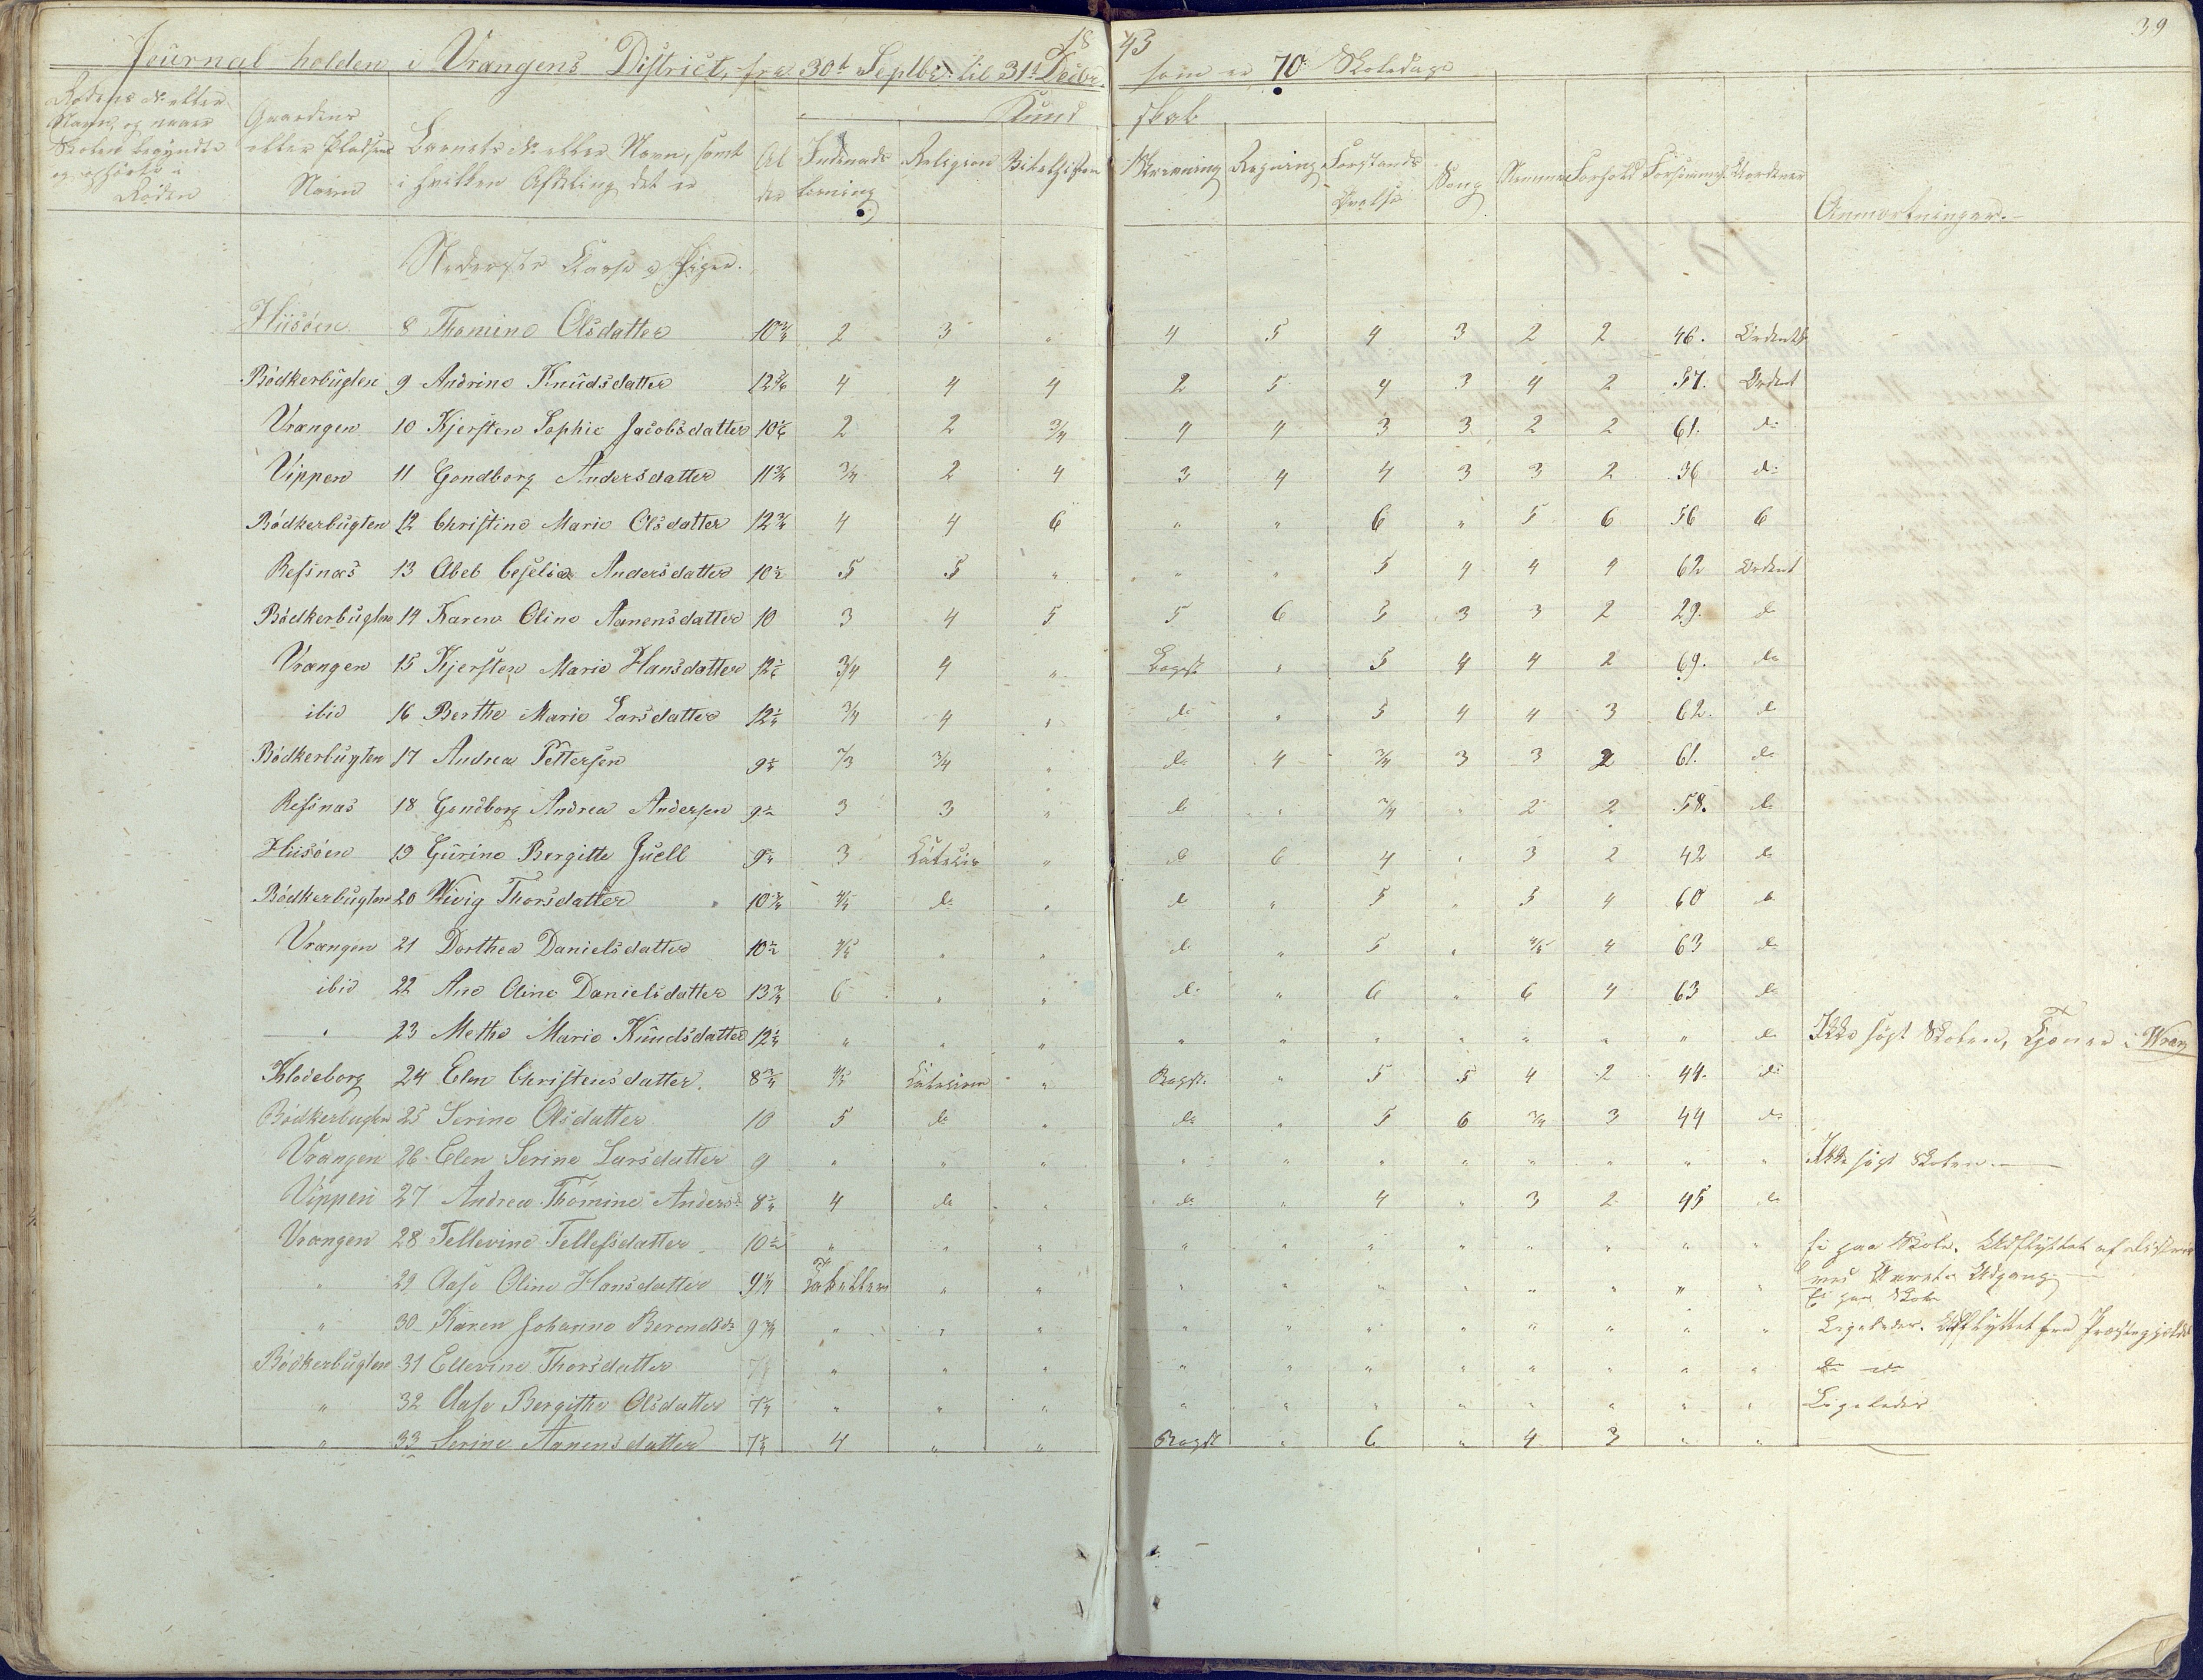 39
Journal holden i Vrangens District, fra 30t Septbr. til 31t Decbr. 18 43 som er 70 Skoledage
Rodens No. eller Navn, og naar Skolen begyndte og ophørte i Roden
Gaardens eller Pladsens Navn
Barnets No. eller Navn, samt i hvilken Afdeling det er
Alder
Kund skab
Indenadslæsning Religion Bibelhistorie Skrivning Regning Forstands Øvelse Sang Nemme Forhold Forsømmelse Uordener Anmærkninger.
Nederste Klasse Piger.
Hiisøen 8 Thomine Olsdatter 10¾ 2 3 " 4 5 4 3 2 2 46. Ordentl
Bödkerbugten 9 Andrine Knudsdatter 4 4 4 2 5 4 3 4 2 57. Ordent
Vrangen 10 Kjersten Sophie Jacobsdatter 2 2 3/4 4 4 3 3 2 2 61. do
Vippen 11 Gondborg Andersdatter 11¾ 3/4 2 4 3 4 4 3 3 2 36 do
Bödkerbugten 12 Christine Marie Olsdatter 12¾ 4 4 6 " " 6 " 5 6 56 6
Refsnæs 13 Abel Andersdatter 10½ 5 5 " " " 5 4 4 4 62 Ordent
Bödkerbugten 14 Karen Oline Aanensdatter 10 3 4 5 5 6 5 3 3 2 29. do
Vrangen 15 Kjersten Marie Hansdatter 3/4 4 " Bogst. " 5 4 4 2 69. do
ibid 16 Berthe Marie Larsdatter 12¼ 3/4 4 " do " 5 4 4 3 62. do
Bödkerbugten 17 Andrea Pettersen 2/3 3/4 " do 4 3/4 3 3 2 61. do
Refsnæs 18 Gondborg Andrea Andersen 9½ 3 3 " do " 3/4 " 2 2 58. do
Hiisöen 19 Gurine Bergitte Juell 3 " do 6 4 " 3 2 42 do
Bödkerbugten 20 Wivig Thorsdatter 10¾ 4/5 do " do " 5 " 5 4 60 do
Vrangen 21 Dorthea Danielsdatter 10½ 4/5 " " do " 5 " 4/5 4 63 do
ibid 22 Ane Oline Danielsdatter 13¾ 6 " " do " 6 " 6 4 63 do
" 23 Methe Marie Knudsdatter 12¼ " " " " " " " " " " do Ikke søgt Skolen, Tjener i Wrang
Klodeborg 24 Elen Christensdatter. 8¾ 4/5 " Bogst. " 5 5 4 2 44. do
Bödkerbugten 25 Serine Olsdatter 10 5 do " do " 5 6 3/4 3 44 do
Vrangen 26 Elen Serine Larsdatter 9 " " " " " " " " " " " Ikke søgt Skolen.
Vippen 27 Andrea Thomine Andersd. 4 do " do " 4 " 3 2 45 do
Vrangen 28 Tellevine Tellefsdatter 10½ " " " " " " " " " " " Ei paa Skole. Udflyttet af District
ved Aarets Udgang
" 29 Aase Oline Hansdatter " " " " " " " " " " Ei paa Skole
" 30 Karen Johanne Berentsdr. 9¾ " " " " " " " " " " " Ligeledes. Udflyttet fra Præstegjeldet
Bödkerbugten 31 Ellevine Thorsdatter " " " " " " " " " " " do do
" 32 Aase Bergitte Olsdatter " " " " " " " " " " " Ligeledes
" 33 Serine Aanensdatter 4 " " Bogst " 6 " 4 3 " "